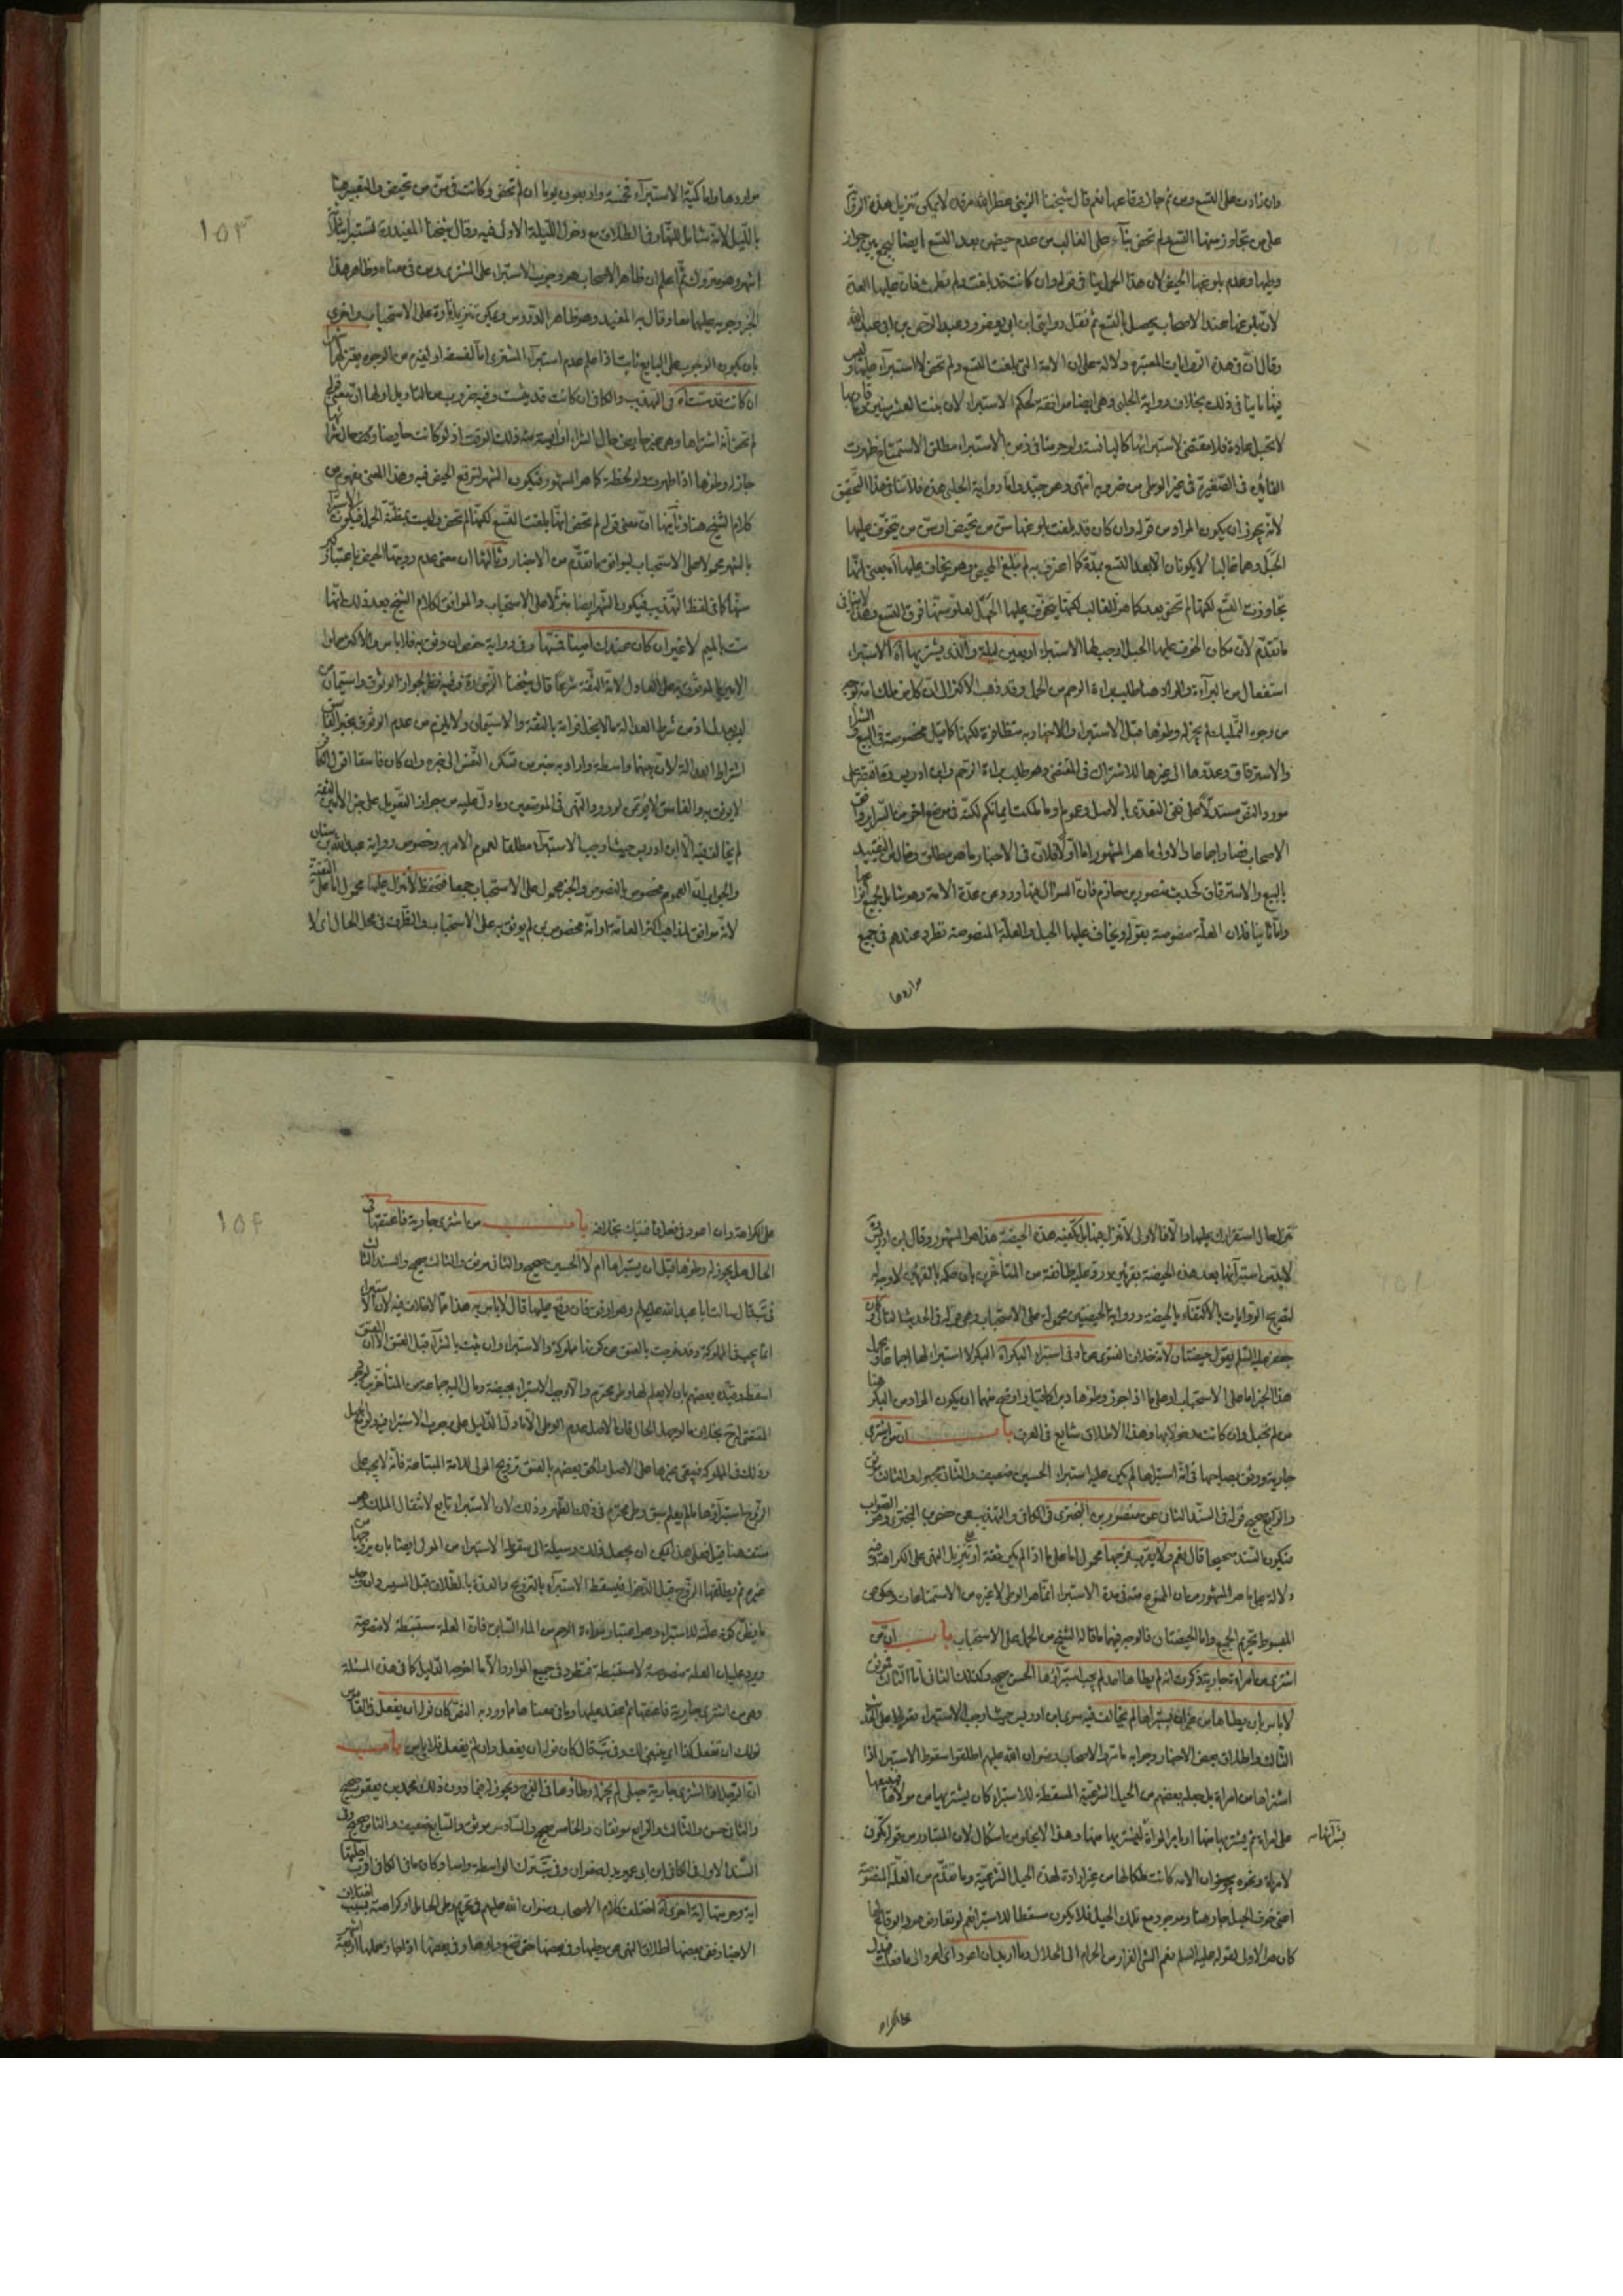 وان زادت على التسع ومن ثم جاز وقاعها نعم قال شيخنا الزيني عطر الله مرقده لا يمكن تنزيل هذه الرواية
على من تجاوز سنها التسع ولم تحض بناء على الغالب من عدم حيضهن بعد التسع ايضا ليجمع بين جواز
وطيها وعدم بلوغها الحيض لان هذا الحمل ينافي قوله وان كانت قد بلغت ولم تطمث فان عليها العدة
لان بلوغها عند الاصحاب يحصل بالتسع ثم نقل روايتي ابن ابي يعفور وعبد الرحمن بن ابي عبد الله
وقال ان في هذه الروايات المعتبرة دلالة على ان الامة التي بلغت التسع ولم تحض لا استبراء عليها وليس
فيها ما ينافي ذلك بخلاف رواية الحلبي وهي ايضا موافقة لحكمة الاستبراء لان بنت العشر سنين وما قاربها
لا تحبل عادة فلا مقتضى لاستبرائها كاليائسة ولو حرمنا في زمن الاستبراء مطلق الاستمتاع ظهرت
الفائدة في الصغيرة في غير الوطي من ضروبه انتهى وهو جيد واما رواية الحلبي هذه فلا تنافي هذا التحقيق
لانه يجوز ان يكون المراد من قوله وان كان قد بلغت بلوغها سن من تحيض او سن من يتخوف عليها
الحبل وهما غالبا لا يكونان الا بعد التسع بمدة كما اعترف به لم تبلغ الحيض وهو يخاف عليها اه يعني انها
تجاوزت التسع لكنها لم تحض بعد كما هو الغالب لكنها يتخوف عليها الحمل لعلو سنها فوق التسع وهذا لا ينافي
ما تقدم لان مكان الخوف عليها الحبل اوجب لها الاستبراء اربعين ليلة والذي يشتريها اه الاستبراء
استفعال من البرآءة والمراد هنا طلب براءة الرحم من الحمل وقد ذهب الاكثر الى ان كل من ملك امة بوجه
من وجوه التمليك لم يجز له وطؤها قبل الاستبراء والاخبار به متظافرة لكنها كما قيل مخصوصة في البيع والشراء
والاسترقاق وعدوها الى غيرها للاشتراك في المقتضي وهو طلب براءة الرحم وابن ادريس وقف على
مورد النص مستدلا على نفي التعدي بالاصل وعموم او ما ملكت ايمانكم لكنه في موضع اخر من السراير وافق
الاصحاب نصا واجماعا والاولى ما هو المشهور اما اولا فلان في الاخبار ما هو مطلق وخال من التقييد
بالبيع والاسترقاق كحديث منصور بن حازم فان السؤال فيها ورد عن عدة الامة وهو شامل لجميع افرادها
واما ثانيا فلان العلة منصوصة بقوله ويخاف عليها الحبل والعلة المنصوصة تطرد عندهم في جميع
مواردها
مواردها واما كمية الاستبرآء فخمسة واربعون يوما ان لم تحض وكانت في سن من تحيض والتعبير هنا
بالليل لانه شامل للنهار في الطلاق مع دخول الليلة الاولى فيه وقال شيخنا المفيد تستبرا بثلاثة
اشهر وهو متروك ثم اعلم ان ظاهر الاصحاب هو وجوب الاستبراء على المشتري وهو في معناه وظاهر هذا
الخبر وجوبه عليهما معا وقال به المفيد وهو ظاهر الدروس ويمكن تنزيله تارة على الاستحباب واخرى
بان يكون الوجوب على البايع ثابت اذا علم عدم استبراء المشتري اما لفسقه او لغيره من الوجوه
ان كانت قد يئست في التهذيب والكافي ان كانت قد يئست وفيه ضروب من التاويل اولها ان معنى قوله
لم تحض انه اشتراها وهي غير حايض حال الشراء او آيسة منه ذلك الوقت اذ لو كانت حايضا وقت حال شرائها
جاز له وطؤها اذا طهرت ولو لحظة كما هو المشهور فيكون الشهر لتوقع الحيض فيه وهذا المعنى مفهوم من
كلام الشيخ هنا وثانيها ان معنى قوله لم تحض انها بلغت التسع لكنها لم تحض وليست مظنة الحمل فيكون الاستبراء
بالشهر محمولا على الاستحباب ليوافق ما تقدم من الاخبار وثالثها ان معنى عدم رويتها الحيض باعتبار كبر
سنها كما في لفظ التهذيب فيكون الشهر ايضا منزلا على الاستحباب والموافق لكلام الشيخ بعد ذلك انها
مست بالميم لا غير ان كان عندك امينا فمسها وفي رواية حفص ان وثق به فلا باس والاكثر حملوا
الامين والموثوق به على العادل لانه الثقة شرعا قال شيخنا الزيني وفيه نظر لجواز الوثوق واستيمان من
ليس بعدل
اشتراط العدالة لان بينهما واسطة واراد به من تسكن النفس الى خبره وان كان فاسقا اقول
لا يوثق به والفاسق لا يؤتمن لورود النهي في الموضعين وما دل عليه من جواز التعويل على خبر الامين الثقة
لم يخالف فيه الا ابن ادريس حيث اوجب الاستبرآء مطلقا لعموم الامر به وخصوص رواية عبد الله بن سنان
والجواب ان العموم مخصوص بالنصوص والخبر محمول على الاستحباب جمعا محمول اما على التقية
لانه موافق لمذاهب اكثر العامة او انه مخصوص بمن لم يوثق به على الاستحباب والظرف في محل الحال اي لا
١٥٣
لابد من استبرآئها بعد هذه الحيضة بقرئين ورد عليه طائفة من المتأخرين بان حكمه بالقرئين لا وجه له
لتصريح الروايات بالاكتفاء بالحيضة ورواية الحيضتين محمولة على الاستحباب وهي قوله في الحديث الثاني وكان
جعفر عليه السلم يقول حيضتان لانه خلاف الفتوى عماد في استبراء البكر اه البكر لا استبراء لها اجماعا ويحمل
هذا الخبر اما على الاستحباب او على ما اذا جوز وطؤها دبرا كما قيل واوضح منهما ان يكون المراد من البكر هنا
من لم تحبل وان كانت مدخولا بها وهذا الاطلاق شايع في العرف باب ان من اشترى
جارية ووثق بصاحبها في انه استبراها لم يكن عليه استبراء الحسين ضعيف والثاني مجهول والثالث موثق
والرابع صحيح قوله في السند الثاني عن منصور بن البختري في الكافي والتهذيب عن حفص بن البختري وهو الصواب
فيكون السند صحيحا قال نعم ولا يقرب فرجها محمول اما على ما اذا لم يكن ثقة او تنزيل النهي على الكراهة وفيه
دلالة على ما هو المشهور من ان الممنوع منه في مدة الاستبراء انما هو الوطي لا غيره من الاستمتاعات وحكى عن
المبسوط تحريم الجميع واما الحيضتان فالوجه فيهما ما قاله الشيخ من الحمل على الاستحباب باب ان من
اشترى من امراة جارية ذكرت انه لم يطاها احد لم يجب استبراؤها الحسن صحيح وكذلك الثاني اما الثالث فموثق
لا باس ان يطاها من غير ان يستبراها لم يخالف فيه سوى ابن ادريس حيث اوجب الاستبراء
الثالث واطلاق بعض الاخبار وجوابه ما تر والاصحاب رضوان الله عليهم اطلقوا سقوط الاستبراء اذا
اشتراها من امراة بل جعله بعضهم من الحيل الشرعية المسقطة للاستبراء كان يشتريها من مولاها فيبيعها
على امراة ثم يشتريها منها او يامر امراة لتشتريها منها وهذا لا يخلو من اشكال لان المتبادر من قوله تكون
بشرائها
لامراة ونحوه يجوز ان الامة كانت ملكا لها من غير ارادة لهذه الحيل الشرعية وما تقدم من العلة المنصوصة
اعني خوف الحبل جار هنا وموجود مع تلك الحيل فلا يكون مسقطا للاستبراء نعم لو تعارض هو والوقاع
كان هو الاولى لقوله عليه السلم نعم الشئ الفرار من الحرام الى الحلال وما اريد ان اعود اي اعود الى ما فعلت
على الكراهة وان اعود في فعل ما فتيك بخلافه باب من اشترى جارية فاعتقها في
الحال هل يجوز له وطؤها قبل ان يستبراها ام لا الحسين صحيح والثاني موثق والثالث صحيح والسند الثاني
قال سالت ابا عبد الله عليه السلم وهو ارفق فان وقع عليها قال لا باس به هذا مما لا خلاف فيه لان الاستبراء
انما يجب في المملوكة وقد خرجت بالعتق عن كونها مملوكة والاستبراء وان ثبت بالشرآء قبل العتق الا ان العتق
اسقطه وقيده بعضهم بان لا يعلم لها وطئ محترم والا وجب الاستبراء بحيضة ومال اليه جماعة من المتأخرين لوجود
المقتضي ح بخلاف ما لو جهل الحال فان الاصل عدم الوطي الا ما دل الدليل على وجوب الاستبراء فيه
وذلك في المملوكة فيبقى غيرها على الاصل والحق بعضهم بالعتق تزويج المولى للامة المبتاعة فانه لا يجب على
الزوج استبرآؤها ما لم يعلم سبق وطئ محترم في ذلك الطهر وذلك لان الاستبراء تابع لانتقال الملك وهو
منتف هنا قيل فعلى هذا يمكن ان يجعل ذلك وسيلة الى سقوط الاستبراء من المولى ايضا بان يزوجها من
غيره ثم يطلقها الزوج قبل الدخول فيسقط الاستبراء بالتزويج والعدة بالطلاق قبل المسيس وان وجد
ما يظن كونه علة للاستبراء وهو اعتبار براءة الرحم من الماء السابق فان العلة مستنبطة لا منصوصة
ويرد عليه ان العلة منصوصة لا مستنبطة فتطرد في جميع الموارد الا ما اخرجه الدليل كما في هذه المسئلة
وهي من اشترى جارية فاعتقها ثم عقد عليها وما في معناها مما ورد به النص كان نوله ان يفعل في القاموس
نولك ان تفعل كذا اي ينبغي لك وفي قال كان نوله ان يفعل وان لم يفعل فلا باس باب
ان الرجل اذا اشترى جارية حبلى لم يجز له وطؤها في الفرج ويجوز له فيما دون ذلك محمد بن يعقوب صحيح
والثاني حسن والثالث والرابع موثقان والخامس صحيح والسادس موثق والسابع ضعيف والثامن صحيح وفي
السند الاول في الكافي ابن ابي عمير بدل صفوان وفي ترك الواسطة راسا وكان ما في الكافي اقرب احلتها
اية وحرمتها اية اخرى اه اختلف كلام الاصحاب رضوان الله عليهم في تحريم وطي الحامل او كراهته بسبب اختلاف
الاخبار ففي بعضها اطلاق النهي عن وطيها وفي بعضها حتى تضع ولدها وفي بعضها اذا جاز حملها اربعة
١٥٤